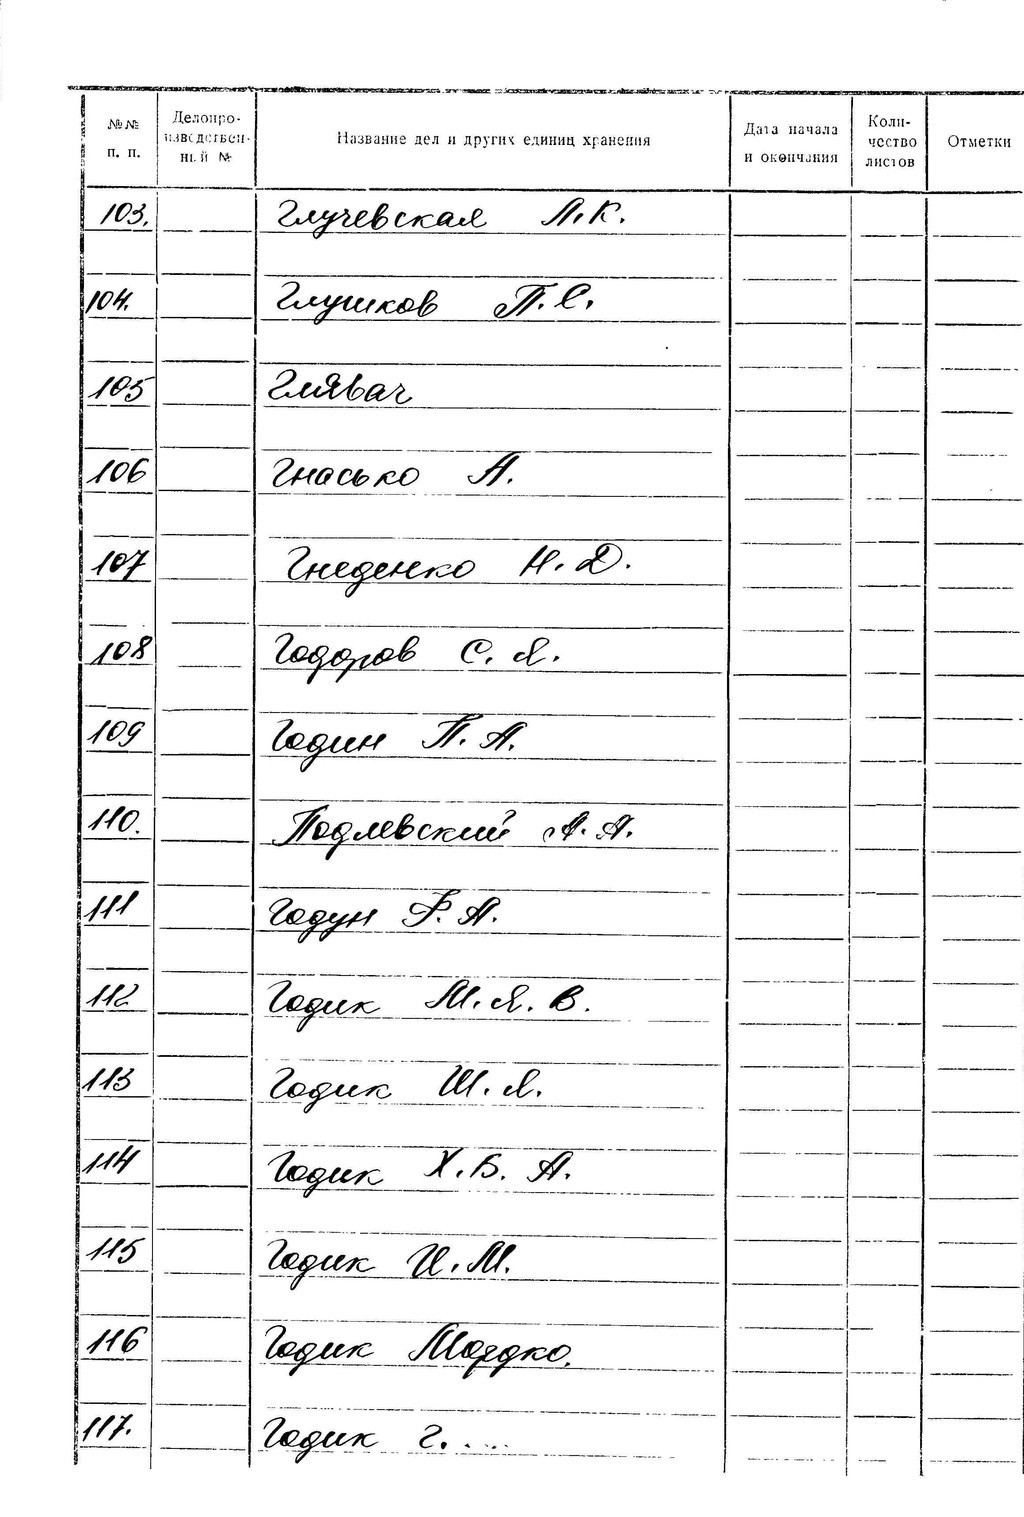 №№ п. п. Делопроизводственный № Название дел и других единиц хранения Дата начала и окончания Количество листов Отметки
103. Глучевская Л.К.
104. Глушков П.С.
105 Глявач
106 Гнасько А.
107 Гнеденко Н.Д.
108 Годоров С.Я.
109 Годин П.А.
110. Подлевский А.А.
111 Годун Р.А.
112 Годик М.Я.В.
113 Годик Ш.Я.
114 Годик Х.Б.А.
115 Годик И.М.
116 Годик Мордко.
117. Годик Г. . . . .